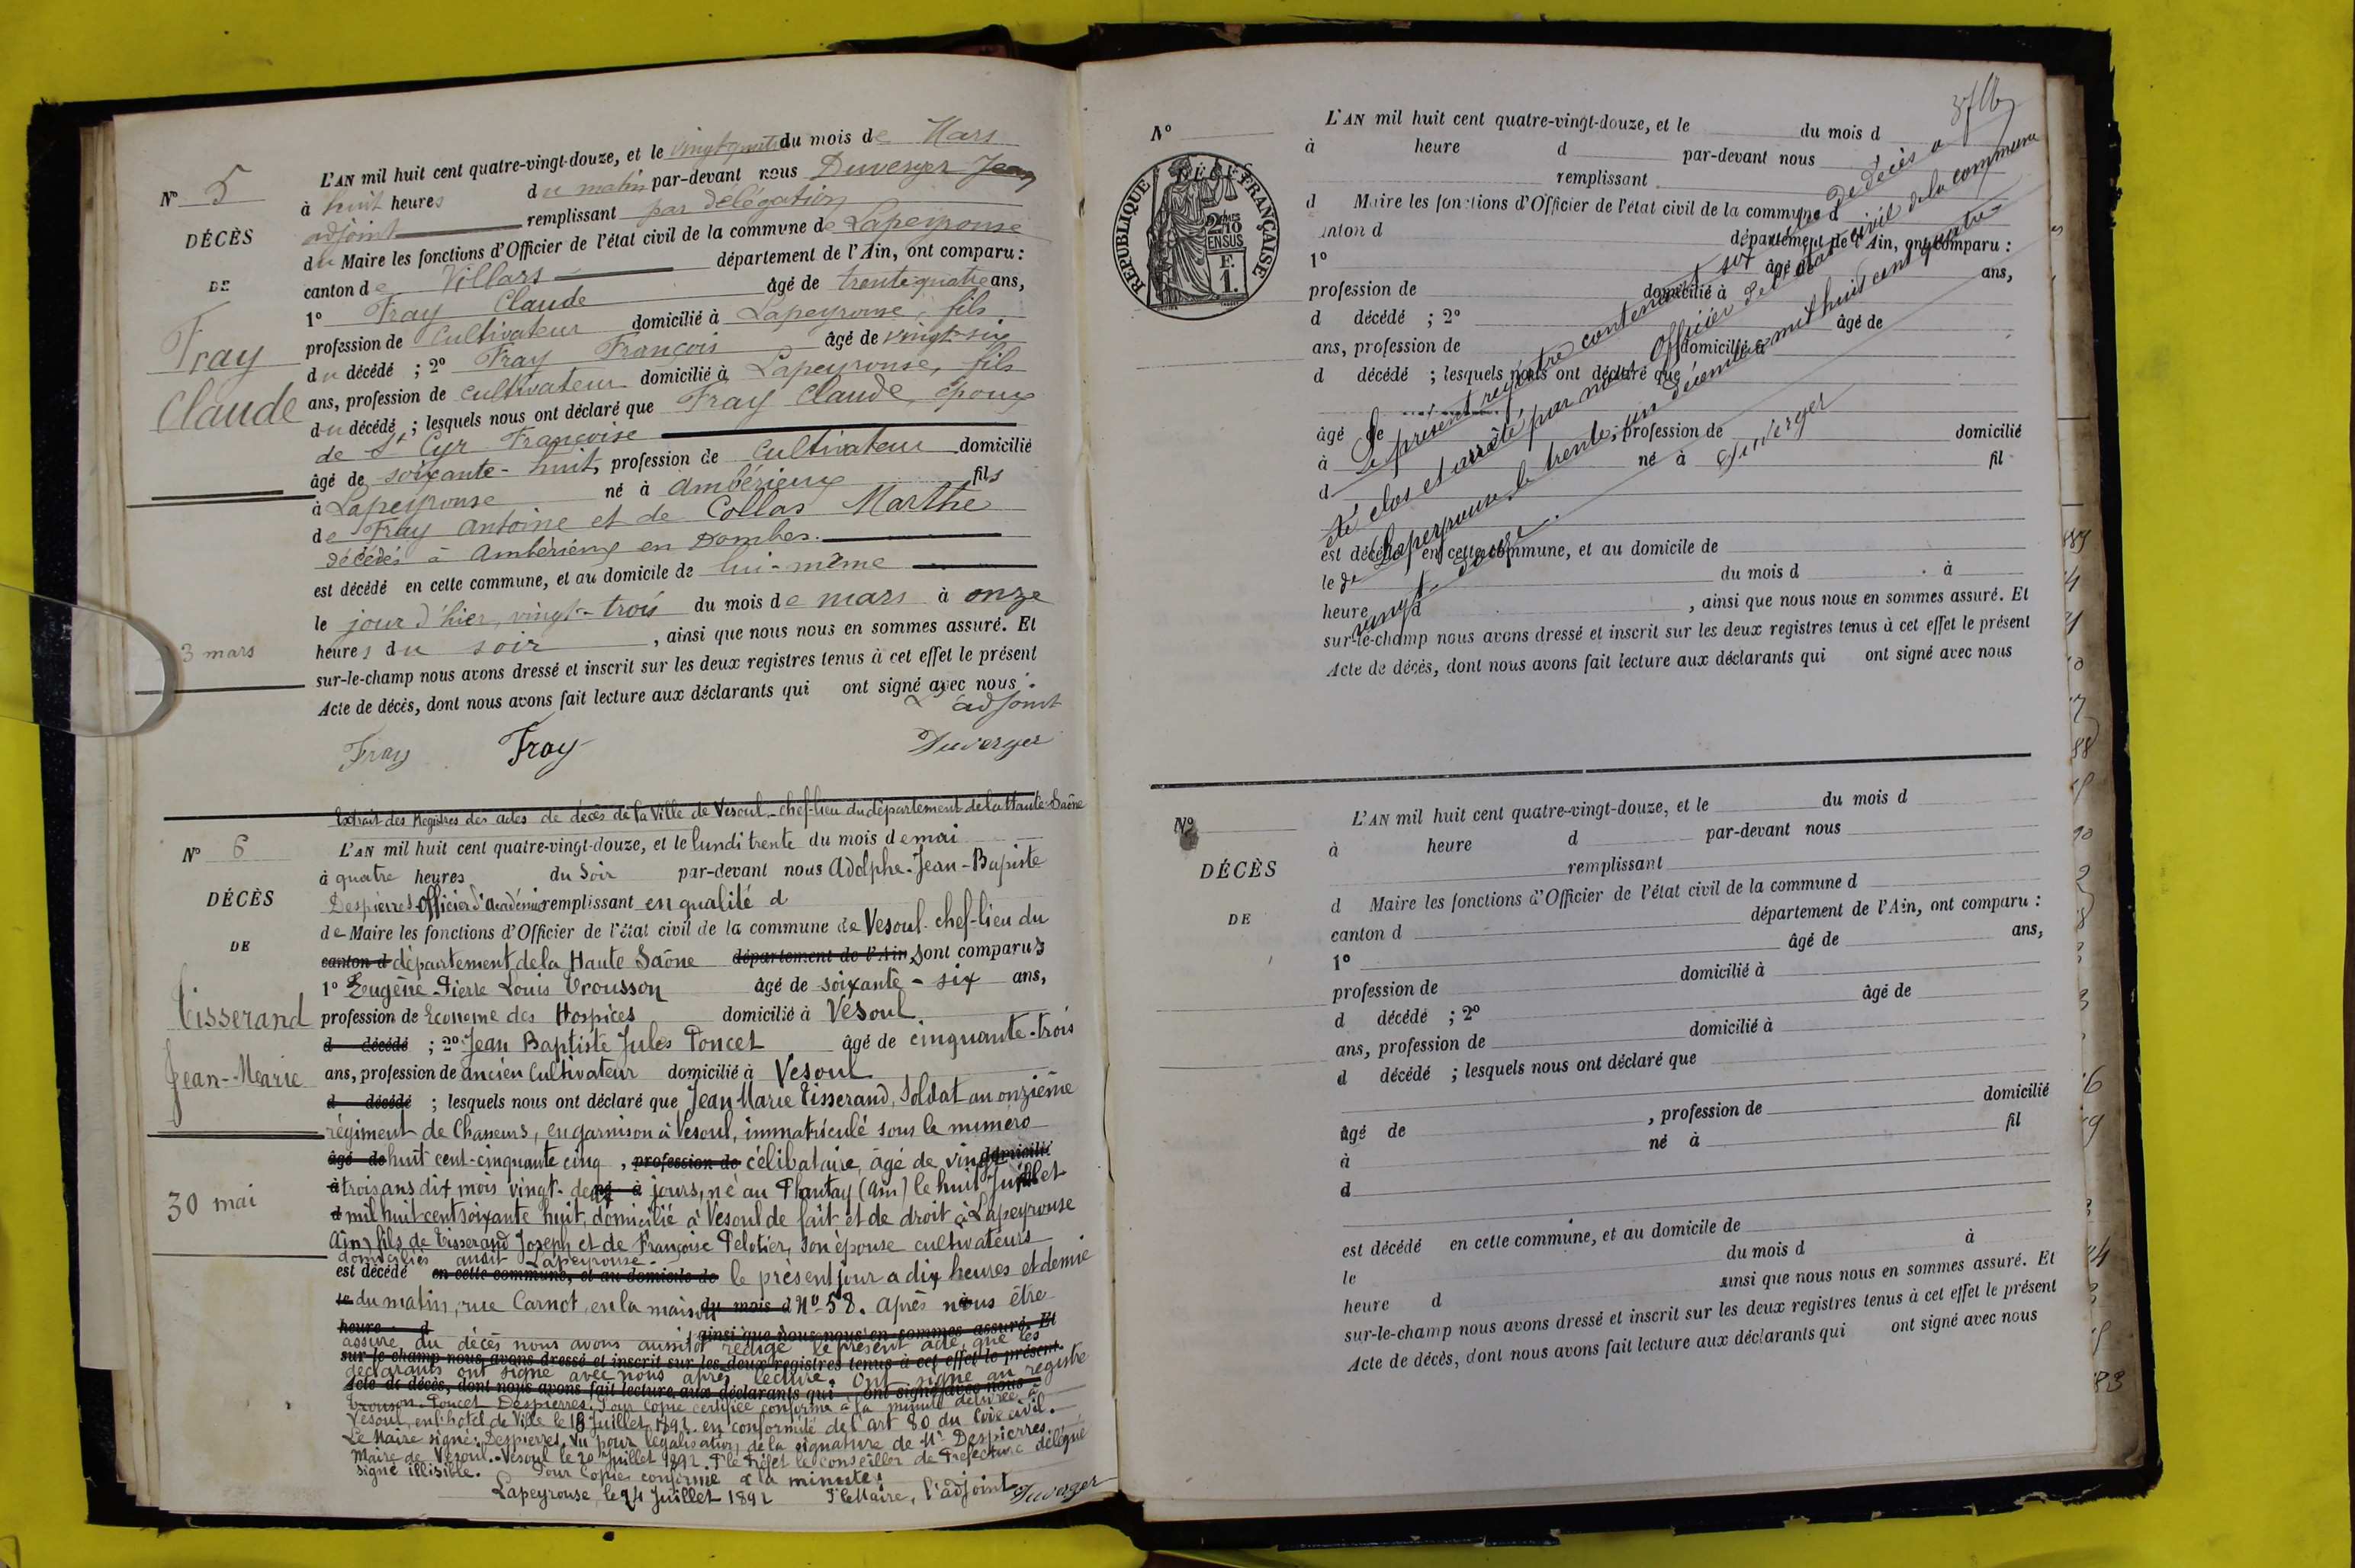 N° 5
DÉCÈS
DE
Fray
Claude
3 mars
L'AN mil huit cent quatre-vingt-douze, et le vingt quatre du mois de Mars
à huit heures du matin par-devant nous Duverger Jean
adjoint remplissant par délégation
du Maire les fonctions d'Officier de l'état civil de la commune de Lapeyrouse
canton de Villars département de l'Ain, ont comparu :
1° Fray Claude âgé de trente quatre ans,
profession de Cultivateur domicilié à Lapeyrouse, fils
du décédé ; 2° Fray François âgé de vingt-six
ans, profession de cultivateur domicilié à Lapeyrouse, fils
du décédé ; lesquels nous ont déclaré que Fray Claude, époux
de St Cyr Françoise
âgé de soixante-huit, profession de cultivateur domicilié
à Lapeyrouse né à Ambérieux fils
de Fray Antoine et de Collas Marthe
décédés à Ambérieux en Dombes.
est décédé en cette commune, et au domicile de lui-même
le jour d'hier, vingt-trois du mois de mars à onze
heures du soir , ainsi que nous nous en sommes assuré. Et
sur-le-champ nous avons dressé et inscrit sur les deux registres tenus à cet effet le présent
Acte de décès, dont nous avons fait lecture aux déclarants qui ont signé avec nous.
L'adjoint
Fray Fray Duverger
Extrait des Registres des actes de décès de la Ville de Vesoul, chef-lieu du département de la Haute-Saône
N° 6
DÉCÈS
DE
Tisserand
Jean-Marie
30 mai
L'AN mil huit cent quatre-vingt-douze, et le lundi trente du mois de mai
à quatre heures du soir par-devant nous Adolphe-Jean-Bapiste
Despierres Officier d'académie remplissant en qualité d
de Maire les fonctions d'Officier de l'état civil de la commune de Vesoul chef-lieu du
canton d département de la Haute Saône département de l'Ain, sont comparus
1° Eugène-Pierre Louis Trousson âgé de soixante-six ans,
profession de Econome des Hospices domicilié à Vesoul
d décédé ; 2° Jean Baptiste Jules Poncet âgé de cinquante-trois
ans, profession de ancien Cultivateur domicilié à Vesoul
d décédé ; lesquels nous ont déclaré que Jean Marie Tisserand, Soldat au onzième
régiment de Chasseurs, en garnison à Vesoul, immatriculé sous le numéro
âgé de huit cent-cinquante cinq , profession de célibataire, âgé de vingt domicilié
à trois ans dix mois vingt-deux né à jours, né au Plantay (Ain) le huit Juillet
d mil huit cent soixante huit, domicilié à Vesoul de fait et de droit à Lapeyrouse
Ain, fils de Tisserand Joseph et de Françoise Pelotier, son épouse cultivateurs
domiciliés audit Lapeyrouse.
est décédé en cette commune, et au domicile de le présent jour a dix heures et demie
le du matin, rue Carnot, en la maison du mois d N° 58. après nous être
heure d ainsi que nous nous en sommes assuré. Et
assuré du décès nous avons aussitôt rédigé le présent acte que les
sur-le-champ nous avons dressé et inscrit sur les deux registres tenus à cet effet le présent
déclarants ont signé avec nous après lecture. Ont signé au registre
Acte de décès, dont nous avons fait lecture aux déclarants qui ont signé avec nous
Trousson Poncet Despierres. Pour Copie certifiée conforme à la minute délivrée à
Vesoul, en l'hotel de Ville le 18 Juillet 1892 en conformité de l'art 80 du Code civil.
Le Maire signé: Despierres. Vu pour légalisation, de la signature de Mr Despierres
Maire de Vesoul. Vesoul le 20 Juillet 1892. Ple Préfet le conseiller de Préfecture délégué
signé illisible. Pour Copie conforme à la minute:
Lapeyrouse, le 24 Juillet 1892 P le Maire, l'adjoint Duverger
N°
RÉPUBLIQUE FRANÇAISE
L'AN mil huit cent quatre-vingt-douze, et le du mois d
à heure d par-devant nous
remplissant
d Maire les fonctions d'Officier de l'état civil de la commune d
anton d département de l'Ain, ont comparu :
1° âgé de ans,
profession de domicilié à
d décédé ; 2° âgé de
ans, profession de domicilié à
d décédé ; lesquels nous ont déclaré que
âgé de , profession de domicilié
à né à fil
d
est décédé en cette commune, et au domicile de
le du mois d à
heure d , ainsi que nous nous en sommes assuré. Et
sur-le-champ nous avons dressé et inscrit sur les deux registres tenus à cet effet le présent
Acte de décès, dont nous avons fait lecture aux déclarants qui ont signé avec nous
Le présent registre contenant six actes de décès a
été clos et arrêté par nous Officier de l'état civil de la commune
de Lapeyrouse, le trente-un décembre mil huit cent quatre-
vingt-douze.
Duverger
N°
DÉCÈS
DE
L'AN mil huit cent quatre-vingt-douze, et le du mois d
à heure d par-devant nous
remplissant
d Maire les fonctions d'Officier de l'état civil de la commune d
canton d département de l'Ain, ont comparu :
1° âgé de ans,
profession de domicilié à
d décédé ; 2° âgé de
ans, profession de domicilié à
d décédé ; lesquels nous ont déclaré que
âgé de , profession de domicilié
à né à fil
d
est décédé en cette commune, et au domicile de
le du mois d à
heure d ainsi que nous nous en sommes assuré. Et
sur-le-champ nous avons dressé et inscrit sur les deux registres tenus à cet effet le présent
Acte de décès, dont nous avons fait lecture aux déclarants qui ont signé avec nous